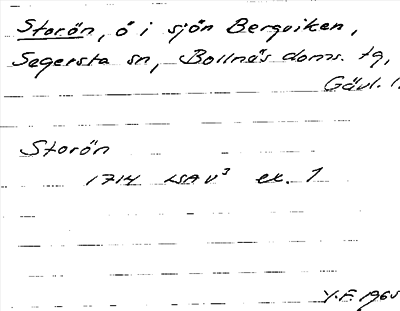 Storön, ö i sjön Bergviken,
Segersta sn, Bollnäs doms. tg,
Gävl. l.
Storön
1714 LSA V³ ex. 1
Y.F. 1965